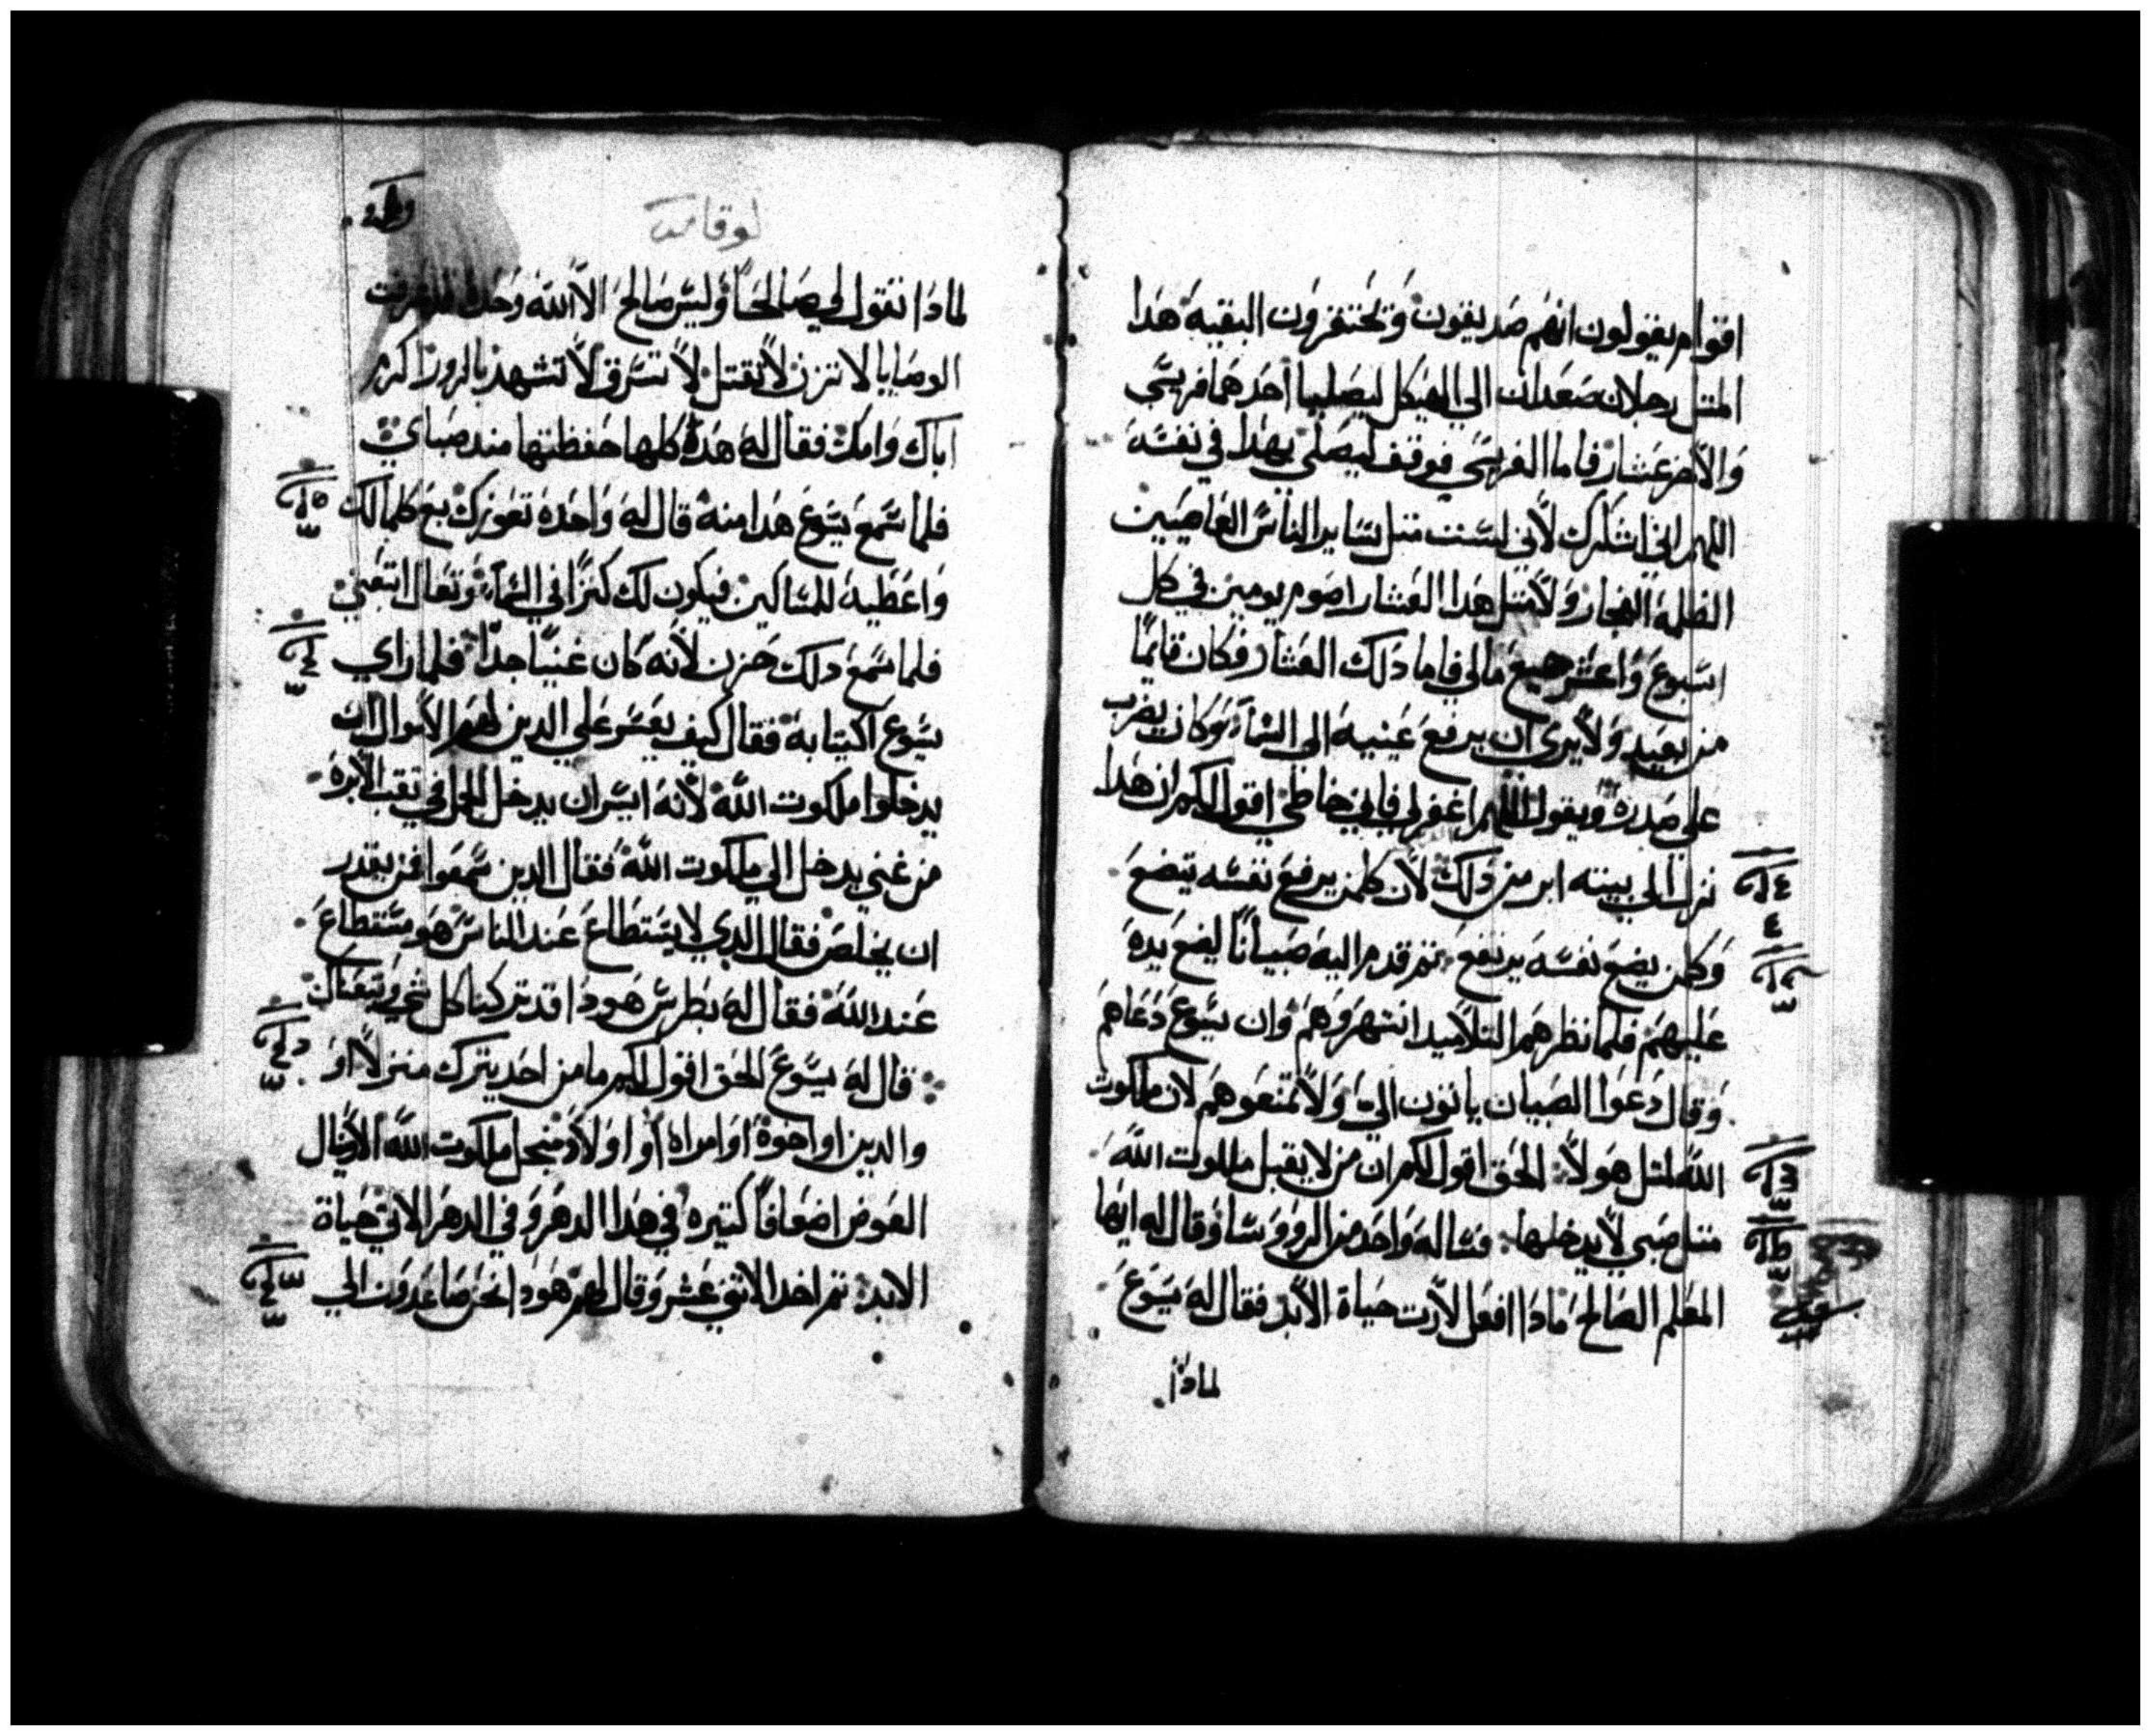 اقوام يقولون انهم صديقون ويحتقرون البقيه هدا
المتل رجلان صعدا الي الهيكل ليصليا احدهما فريسي
والاخر عشار فاما الفريسي فوقف ليصلي بهدا في نفسه
اللهم اني اشكرك لاني لست متل ساير الناس العاصيين
الظلمه الفجار ولا متل هدا العشار اصوم يومين في كل
اسبوع واعشر جميع مالي فاما دلك العشار فكان قايمًا
من بعيد ولا يري ان يرفع عينيه الى السمآء وكان يضرب
على صدره ويقول اللهم اغفر لي فاني خاطي اقول لكم ان هدا
نزل الي بيته ابر من دلك لان كلمن يرفع نفسه يتضع
وكلمن يضع نفسه يرتفع تم قدم اليه صبيانًا ليضع يده
عليهم فلما نظرهم التلاميد انتهروهم وان يسوع دعاهم
وقال دعوا الصبيان ياتون الي ولا تمنعوهم لان ملكوت
الله لمتل هولا الحق اقول لكم ان من لا يقبل ملكوت الله
متل صبي لا يدخلها فساله واحد من الروسا وقال له ايها
المعلم الصالح مادا افعل لارت حياة الابد فقال له يسوع
لمادا
لوقا
لمادا تقول لي صالحًا وليس صالح الا الله وحده
الوصايا لا تزن لا تقتل لا تسرق لا تشهد بالزور اكرم
اباك وامك فقال له هده كلها حفظتها مند صباي
فلما سمع يسوع هدا منه قال له واحده تعوزك بع كلمالك
واعطيه للمساكين فيكون لك كنزًا في السمآء وتعال اتبعني
فلما سمع دلك حزن لانه كان غنيًا جدًا فلما راي
يسوع اكتيابه فقال كيف يعسر علي الدين لهم الاموال ان
يدخلوا ملكوت الله لانه ايسر ان يدخل الجمل في تقب الابره
من غني يدخل الي ملكوت الله فقال الدين سمعوا فمن يقدر
ان يخلص فقال الدي لا يستطاع عند الناس هو مستطاع
عند الله فقال له بطرس هودا قد تركنا كل شي وتبعناك
قال له يسوع الحق اقول لكم ما من احد يترك منزلاً او
والدين او اخوة او امراه او اولاد من اجل ملكوت الله الا ينال
العوض اضعافًا كتيره في هدا الدهر وفي الدهر الاتي حياة
الابد تم اخد الاتني عشر وقال لهم هودا نحن صاعدون الي